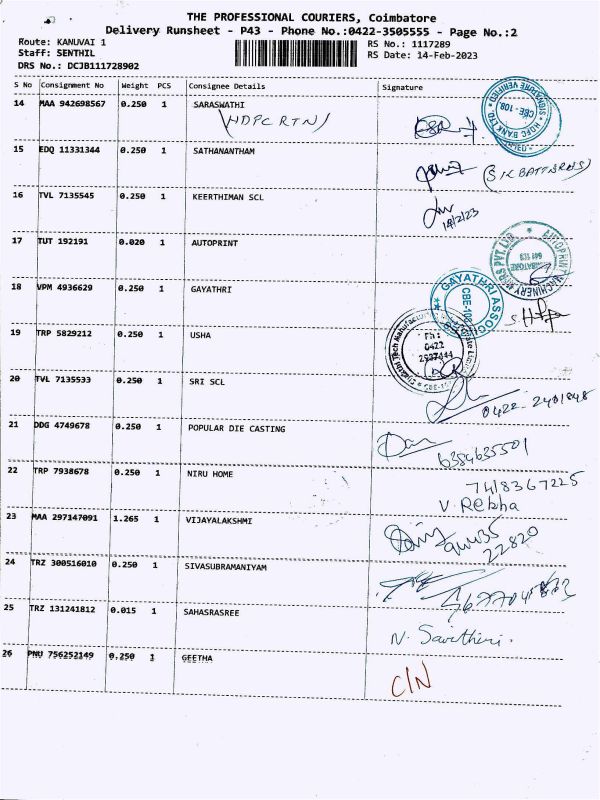 THE PROFESSIONAL COURIERS, Coimbatore
Delivery Runsheet - P43 - Phone No.:0422-3505555 - Page No.:2
Route: KANUVAI 1
Staff: SENTHIL
DRS No.: DCJB111728902
RS No.: 1117289
RS Date: 14-Feb-2023
S No Consignment No Weight PCS Consignee Details Signature
14 MAA 942698567 0.250 1 SARASWATHI
(HDFC RTN)
SIGNATURE VERIFIED HDFC BANK LTD CBE - 108
15 EDQ 11331344 0.250 1 SATHANANTHAM
16 TVL 7135545 0.250 1 KEERTHIMAN SCL
14/2/23
17 TUT 192191 0.020 1 AUTOPRINT
18 VPM 4936629 0.250 1 GAYATHRI
19 TRP 5829212 0.250 1 USHA
PH: 0422
20 TVL 7135533 0.250 1 SRI SCL
0422 2401848
21 DDG 4749678 0.250 1 POPULAR DIE CASTING
6384635501
22 TRP 7938678 0.250 1 NIRU HOME
7418367225
V. Rebha
23 MAA 297147091 1.265 1 VIJAYALAKSHMI
22820
24 TRZ 300516010 0.250 1 SIVASUBRAMANIYAM
25 TRZ 131241812 0.015 1 SAHASRASREE
N. Savitheri.
26 PNU 756252149 0.250 1 GEETHA
C/N